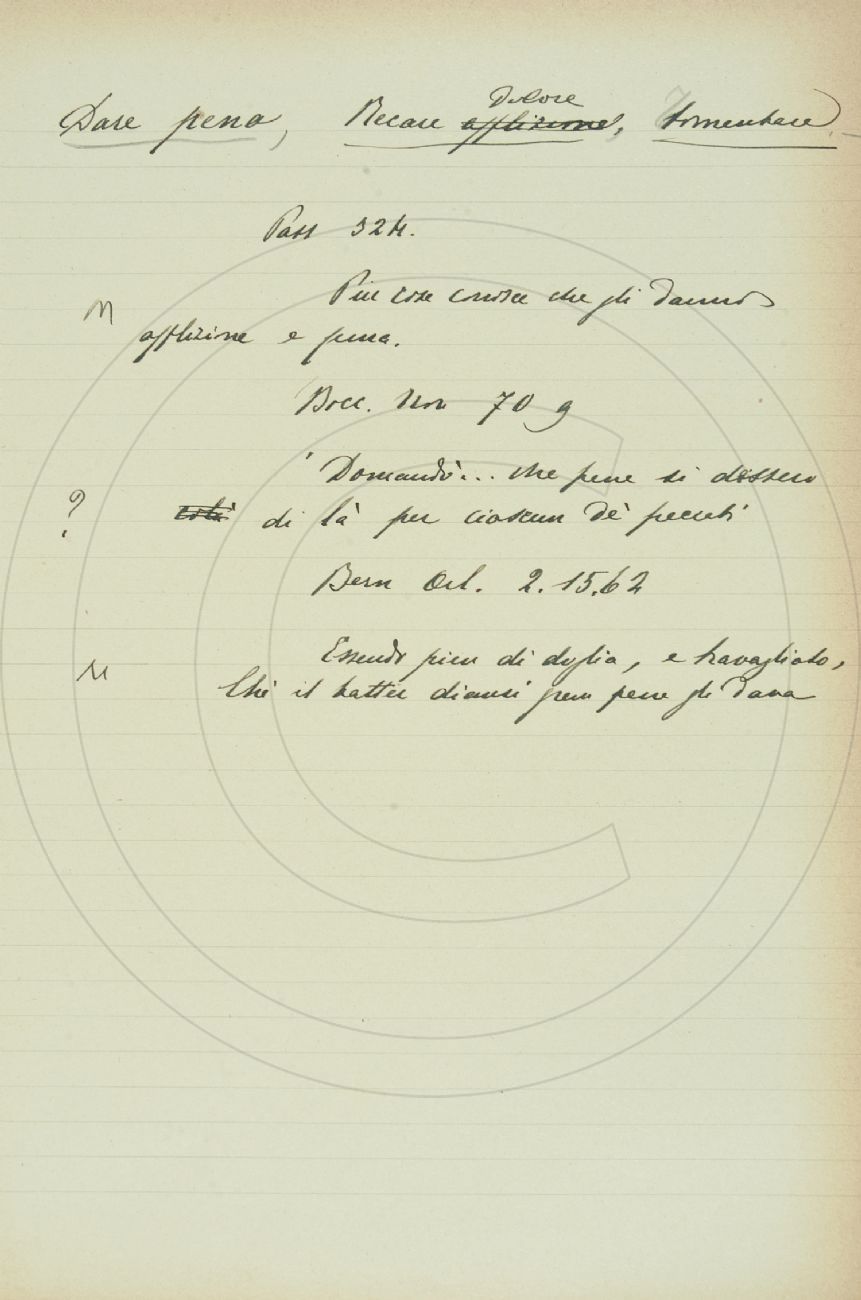 Dolore
Dare pena, Recare afflizione, tormentare
Pass 324.
Più cose conosce che gli danno
M afflizione e pena.
Bocc. Nov 70 9
Domandò... che pene si dessero
? di là per ciascun de' peccati
Bern Orl. 2.15.62
Essendo pien di doglia, e travagliato,
M Chè il batter dianzi gran pene gli dava